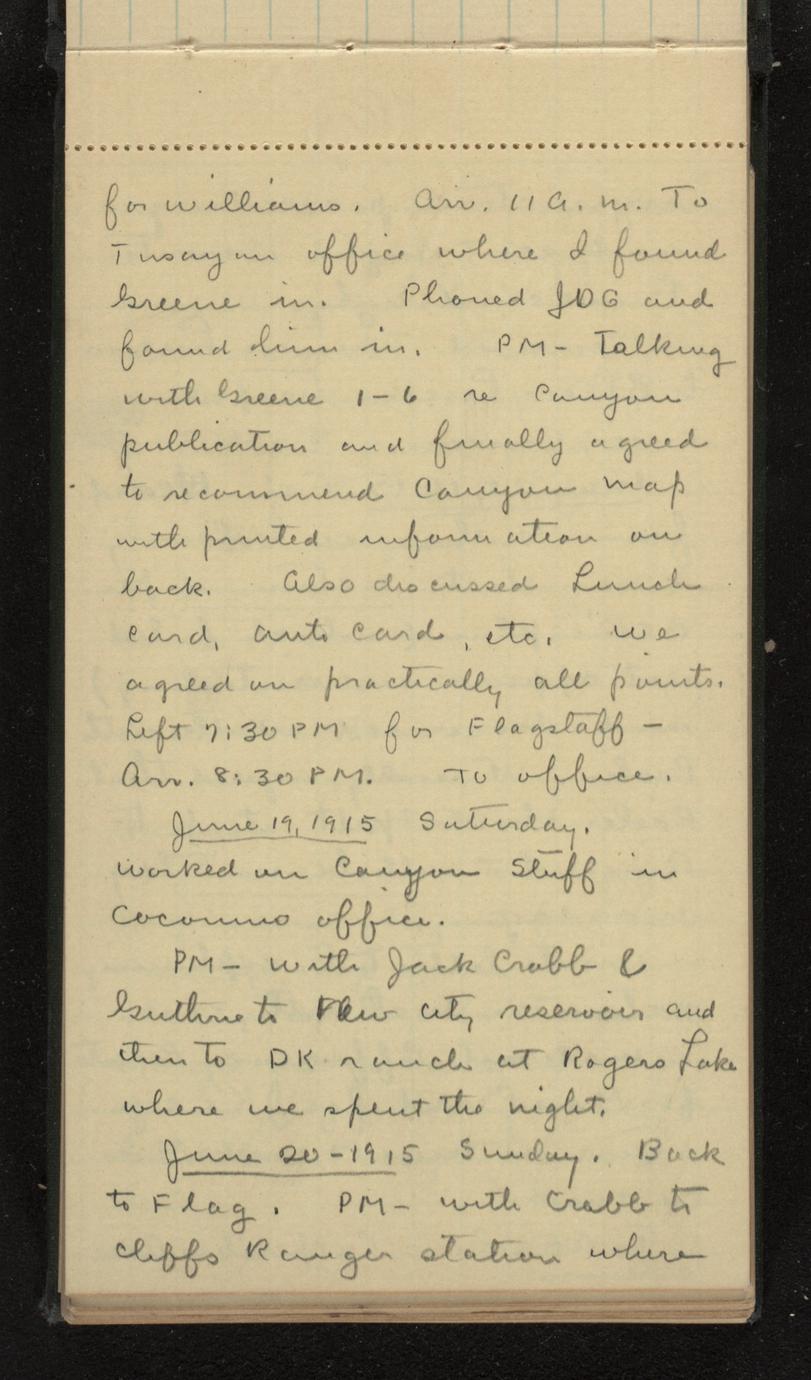 for williams. Arr. 11 A. M. To
Tusayan office where I found
Greene in. Phoned JDG and
found him in. PM- Talking
with Greene 1-6 re Canyon
publication and finally agreed
to recommend Canyon map
with printed information on
back. Also discussed Lunch
card, auto card, etc. we
agreed on practically all points.
Left 7:30 PM for Flagstaff -
Arr. 8:30 PM. To office.
June 19, 1915 Saturday.
worked on Canyon Stuff in
Coconino office.
PM- with Jack Crabb &
Guthrie to New city reservoir and
then to DK ranch at Rogers Lake
where we spent the night.
June 20-1915 Sunday. Back
to Flag. PM- with Crabb to
cliffs Ranger station where